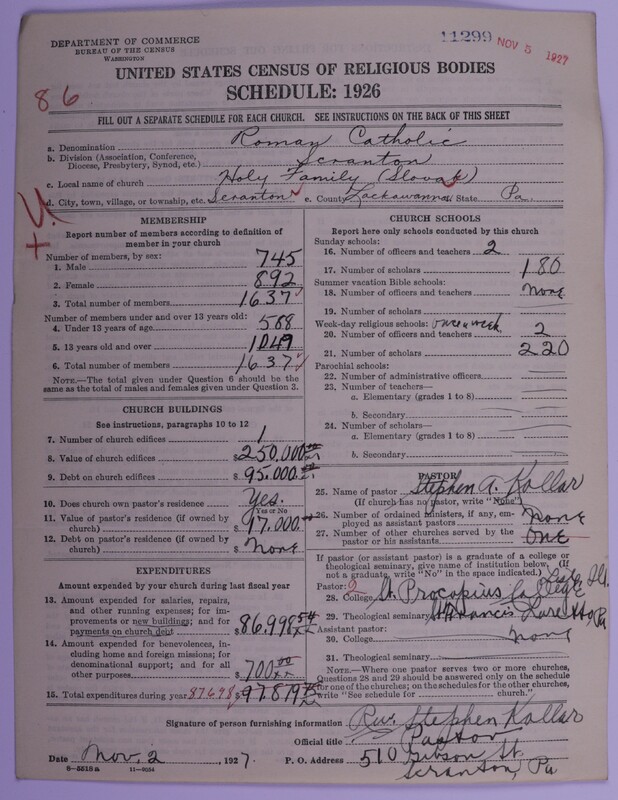 DEPARTMENT OF COMMERCE
BUREAU OF THE CENSUS
WASHINGTON
11299 NOV 5 1927
UNITED STATES CENSUS OF RELIGIOUS BODIES
SCHEDULE: 1926
86
FILL OUT A SEPARATE SCHEDULE FOR EACH CHURCH. SEE INSTRUCTIONS ON THE BACK OF THIS SHEET
a. Denomination Roman Catholic
b. Division (Association, Conference, Diocese, Presbytery, Synod, etc.) Scranton
c. Local name of church Holy Family (Slovak)
d. City, town, village, or township, etc. Scranton e. County Lackawanna State Pa.
MEMBERSHIP
Report number of members according to definition of
member in your church
Number of members, by sex:
1. Male 745
2. Female 892
3. Total number of members 1637
Number of members under and over 13 years old:
4. Under 13 years of age 588
5. 13 years old and over 1049
6. Total number of members 1637
NOTE.—The total given under Question 6 should be
the same as the total of males and females given under Question 3.
CHURCH BUILDINGS
See instructions, paragraphs 10 to 12
7. Number of church edifices 1
8. Value of church edifices $250.000
9. Debt on church edifices $95.000
10. Does church own pastor's residence? Yes.
Yes or No
11. Value of pastor's residence (if owned by
church) $17.000
12. Debt on pastor's residence (if owned by
church) $ None
EXPENDITURES
Amount expended by your church during last fiscal year
13. Amount expended for salaries, repairs,
and other running expenses; for im-
provements or new buildings; and for
payments on church debt $86.998 54
14. Amount expended for benevolences, in-
cluding home and foreign missions; for
denominational support; and for all
other purposes $700 00
15. Total expenditures during year 87698 $97.879
CHURCH SCHOOLS
Report here only schools conducted by this church
Sunday schools:
16. Number of officers and teachers 2
17. Number of scholars 180
Summer vacation Bible schools:
18. Number of officers and teachers None
19. Number of scholars
Week-day religious schools: once a week
20. Number of officers and teachers 2
21. Number of scholars 220
Parochial schools:
22. Number of administrative officers
23. Number of teachers—
a. Elementary (grades 1 to 8)
b. Secondary
24. Number of scholars—
a. Elementary (grades 1 to 8)
b. Secondary
PASTOR
25. Name of pastor Stephen A. Kollar
(If church has no pastor, write "None")
26. Number of ordained ministers, if any, em-
ployed as assistant pastors None
27. Number of other churches served by the
pastor or his assistants One
If pastor (or assistant pastor) is a graduate of a college or
theological seminary, give name of institution below. (If
not a graduate, write "No" in the space indicated.)
Pastor: 2
28. College St. Procopius College Ill.
29. Theological seminary St Francis Loretto Pa
Assistant pastor:
30. College None
31. Theological seminary
NOTE.—Where one pastor serves two or more churches,
Questions 28 and 29 should be answered only on the schedule
for one of the churches; on the schedules for the other churches,
write "See schedule for church."
Signature of person furnishing information Rev. Stephen Kollar
Official title Pastor
Date Nov. 2, 1927. P. O. Address 510 Gibson St.
Scranton, Pa
8—5518a 11—9054